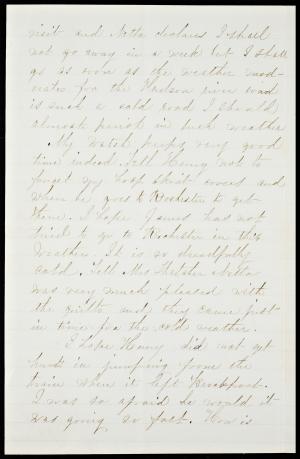 visit and Notta declares I shall
not go away in a week but I shall
go as soon as the weather mod-
erates for the Hudson river road
is such a cold road I should
almost perish in such weather
My watch keeps very good
time indeed. Tell Henry not to
forget my hoop skirt covers and
when he goes to Rochester to get
them. I hope James has not
tried to go to Rochester in this
weather. It is so dreadfully
cold. Tell Mrs Thatcher Notta
was very much pleased with
the quilts and they came just
in time for the cold weather.
I hope Henry did not get
hurt in jumping from the
train when it left Brockport.
I was so afraid he would it
was going so fast. How is